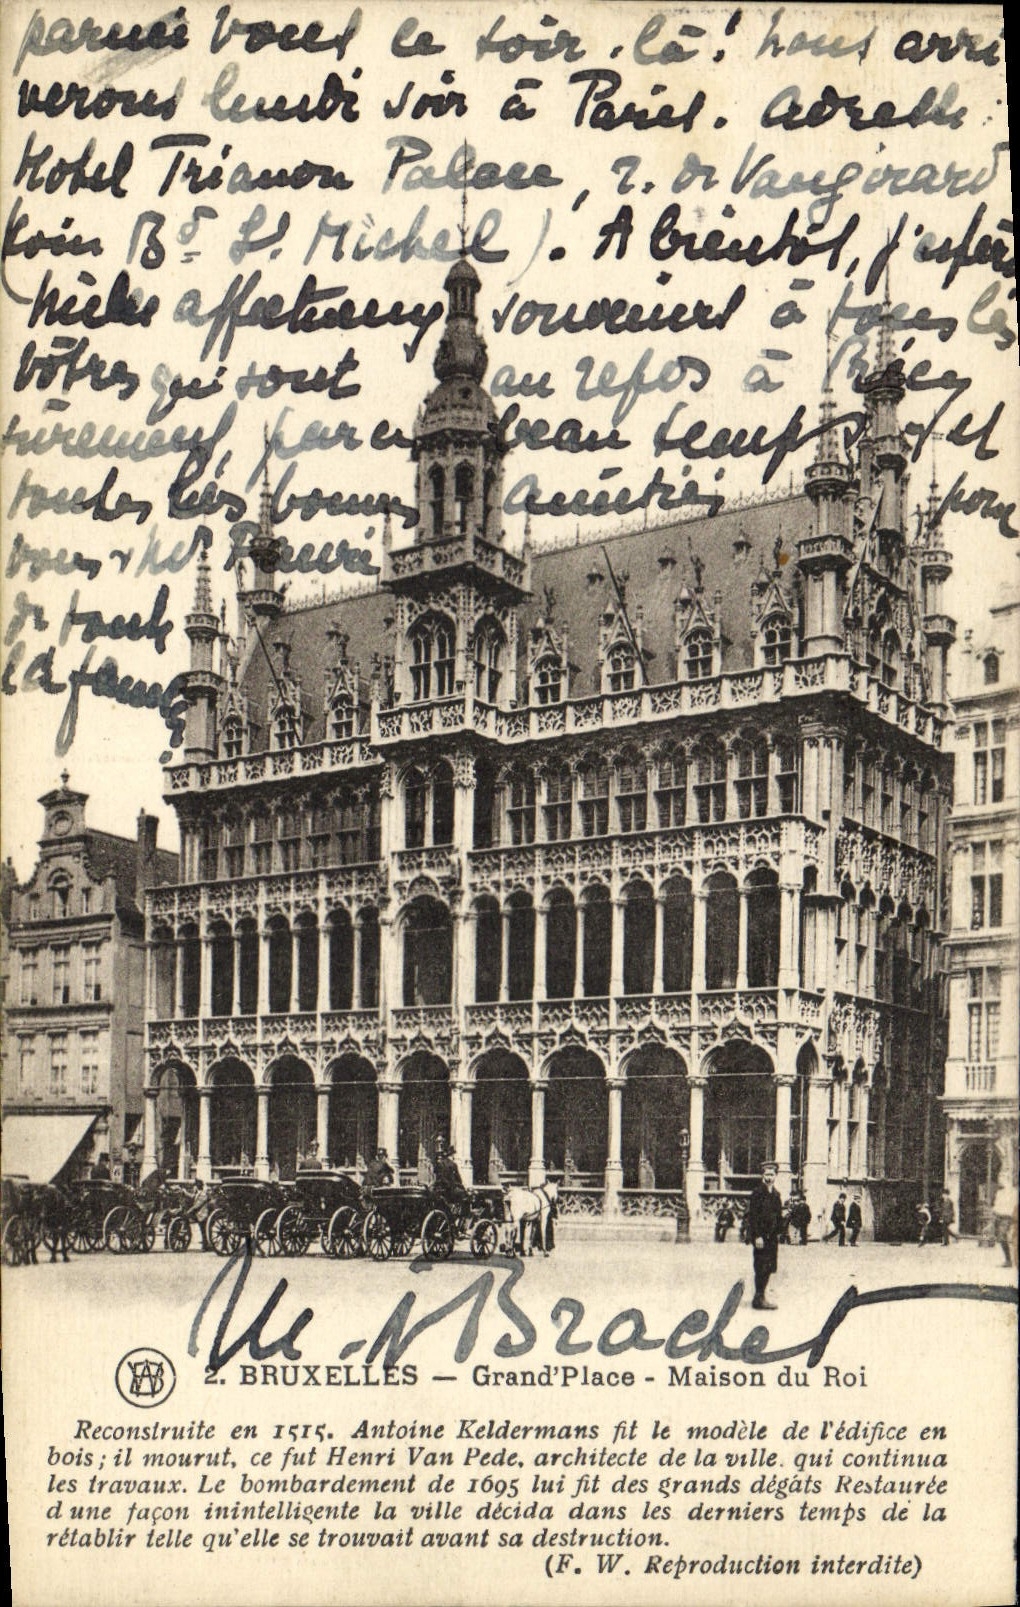 parmi vous ce soir-là! Nous arri
verons lundi soir à Paris. Adresse :
Hotel Trianon Palace, r. de Vaugirard
(coin Bd St Michel). A bientôt, j'espère
Milles affectueux souvenirs à tous les
vôtres qui sont au repos à
sûrement, par ce beau temps, et
toutes les bonnes amitiés pour
vous & Md
de toute
la famille
M. N Brachet
2. BRUXELLES — Grand'Place - Maison du Roi
Reconstruite en 1515. Antoine Keldermans fit le modèle de l'édifice en
bois ; il mourut, ce fut Henri Van Pede, architecte de la ville. qui continua
les travaux. Le bombardement de 1695 lui fit des grands dégâts Restaurée
d une façon inintelligente la ville décida dans les derniers temps de la
rétablir telle qu'elle se trouvait avant sa destruction.
(F. W. Reproduction interdite)